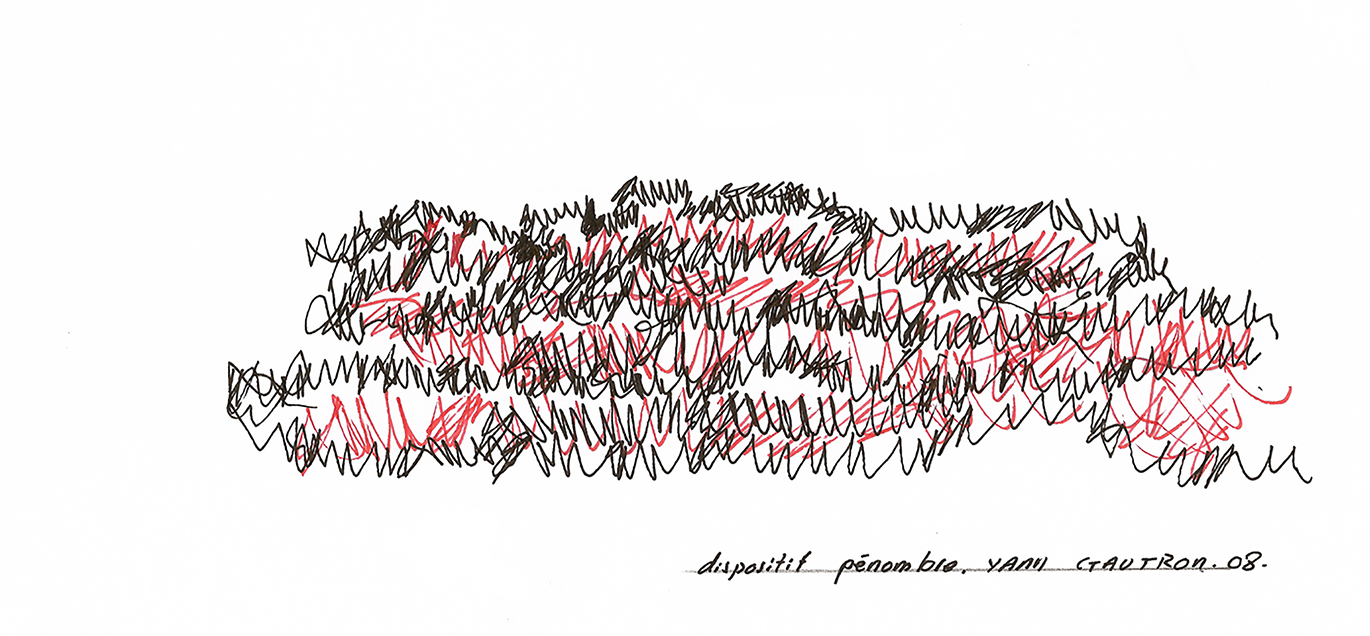 dispositif pénombre. YANN GAUTRON. 08.